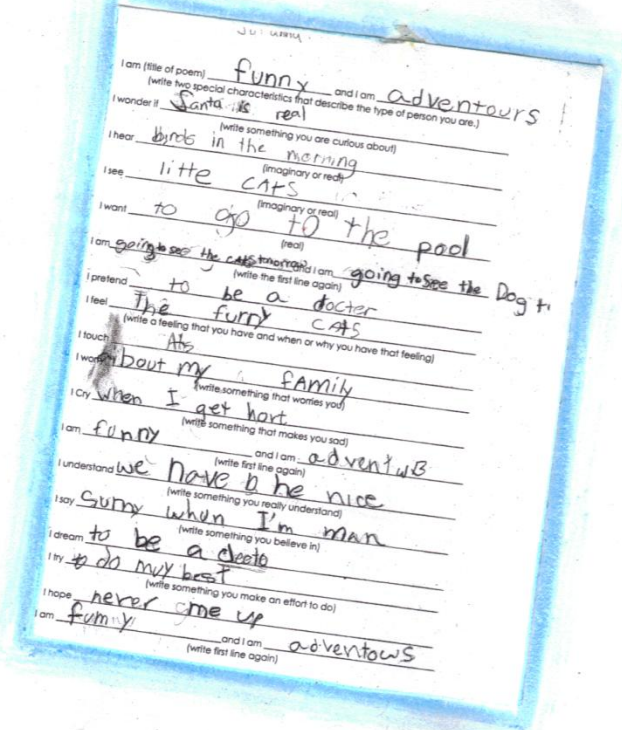 I am (title of poem) funny and I am adventours
(write two special characteristics that describe the type of person you are.)
I wonder if Santa is real
(write something you are curious about)
I hear birds in the morning
(imaginary or real)
I see litte CAtS
(imaginary or real)
I want to go to the pool
(real)
I am going to see the cats tomorrow and I am going to see the Dog
(write the first line again)
I pretend to be a docter
I feel The furry CAtS
(write a feeling that you have and when or why you have that feeling)
I touch
I worry bout my fAmily
(write something that worries you)
I Cry when I get hort
(write something that makes you sad)
I am funny and I am
(write first line again)
I understand we have b he nice
(write something you really understand)
I say whun I'm mAn
(write something you believe in)
I dream to be a
I try to do muy best
(write something you make an effort to do)
I hope never up
I am fumny and I am adventows
(write first line again)